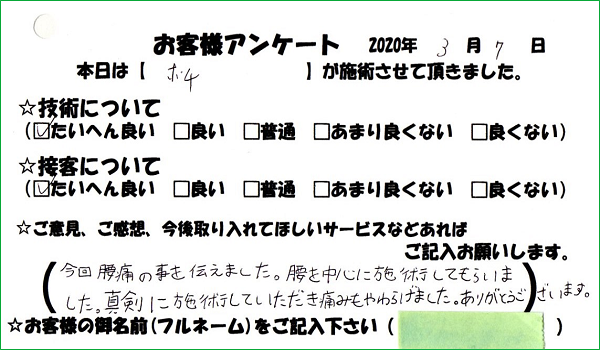 お客様アンケート 2020年 3月 7日
本日は【 ボチ 】が施術させて頂きました。
☆技術について
(☑たいへん良い □良い □普通 □あまり良くない □良くない)
☆接客について
(☑たいへん良い □良い □普通 □あまり良くない □良くない)
☆ご意見、ご感想、今後取り入れてほしいサービスなどあれば
ご記入お願いします。
(今回腰痛の事を伝えました。腰を中心に施術してもらいま
した。真剣に施術していただき痛みもやわらげました。ありがとうございます。)
☆お客様の御名前(フルネーム)をご記入下さい( )